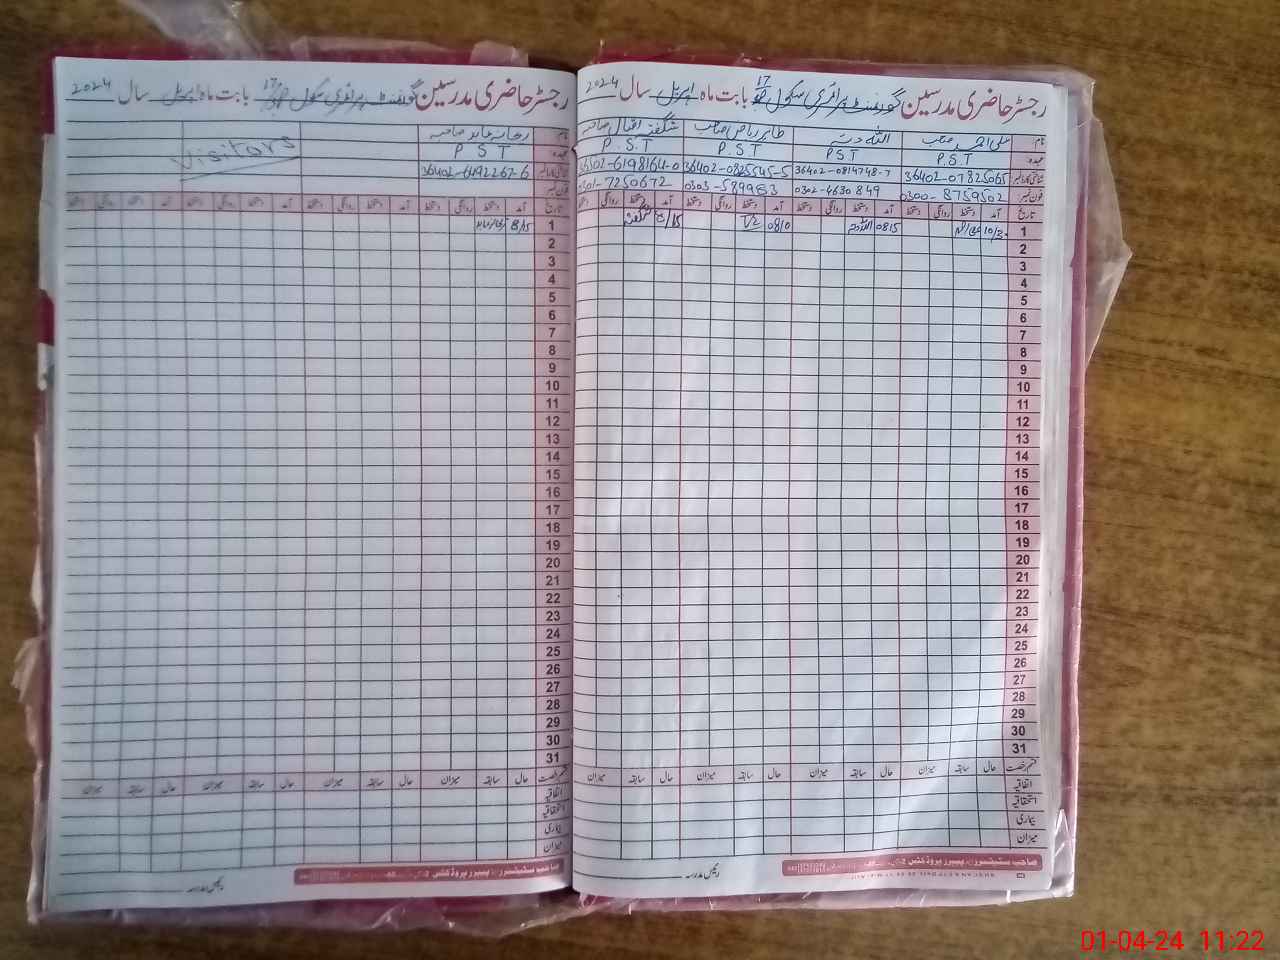 رجسٹر حاضری مدرسین گورنمنٹ پرائمری سکول 17 بابت ماہ اپریل سال 2024
نام علی احمد صاحب اللہ دتہ طاہر ریاض صاحب شگفتہ اقبال صاحبہ
عہدہ P.S.T P S T P.S.T P.S.T
شناختی کارڈ نمبر 36402-07825065 36402-0814748-7 36402-0825545-5 36502-6198164-0
فون نمبر 0300-8759502 0302-4630849 0303-589983 0301-7250672
تاریخ آمد دستخط روانگی آمد دستخط روانگی دستخط آمد دستخط روانگی دستخط آمد دستخط روانگی دستخط
1 0815 اللہ دتہ 0810 8/15 شگفتہ
2
3
4
5
6
7
8
9
10
11
12
13
14
15
16
17
18
19
20
21
22
23
24
25
26
27
28
29
30
31
قسم رخصت حال سابقہ میزان حال سابقہ میزان حال سابقہ میزان حال سابقہ میزان
اتفاقیہ
استحقاقیہ
بیماری
میزان
رئیس مدرسہ
رجسٹر حاضری مدرسین گورنمنٹ پرائمری سکول 17 بابت ماہ اپریل سال 2024
نام Visitors
عہدہ P S T
شناختی کارڈ نمبر 36402-6492262-6
فون نمبر
تاریخ آمد دستخط روانگی دستخط آمد دستخط روانگی دستخط آمد دستخط روانگی دستخط آمد دستخط روانگی دستخط
1 8/15
2
3
4
5
6
7
8
9
10
11
12
13
14
15
16
17
18
19
20
21
22
23
24
25
26
27
28
29
30
31
قسم رخصت حال سابقہ میزان حال سابقہ میزان حال سابقہ میزان حال سابقہ میزان
اتفاقیہ
استحقاقیہ
بیماری
میزان
رئیس مدرسہ
01-04-24 11:22